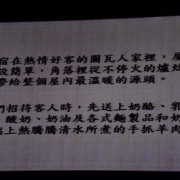 宿在熱情好客的圖瓦人家裡，屋
設簡單，角落裡從不停火的爐灶
帶給整個屋內最溫暖的源頭。
們招待客人時，先送上奶酪、乳
、酸奶、奶油及各式麵製品和奶
鋁上熱騰騰清水所煮的手抓羊肉